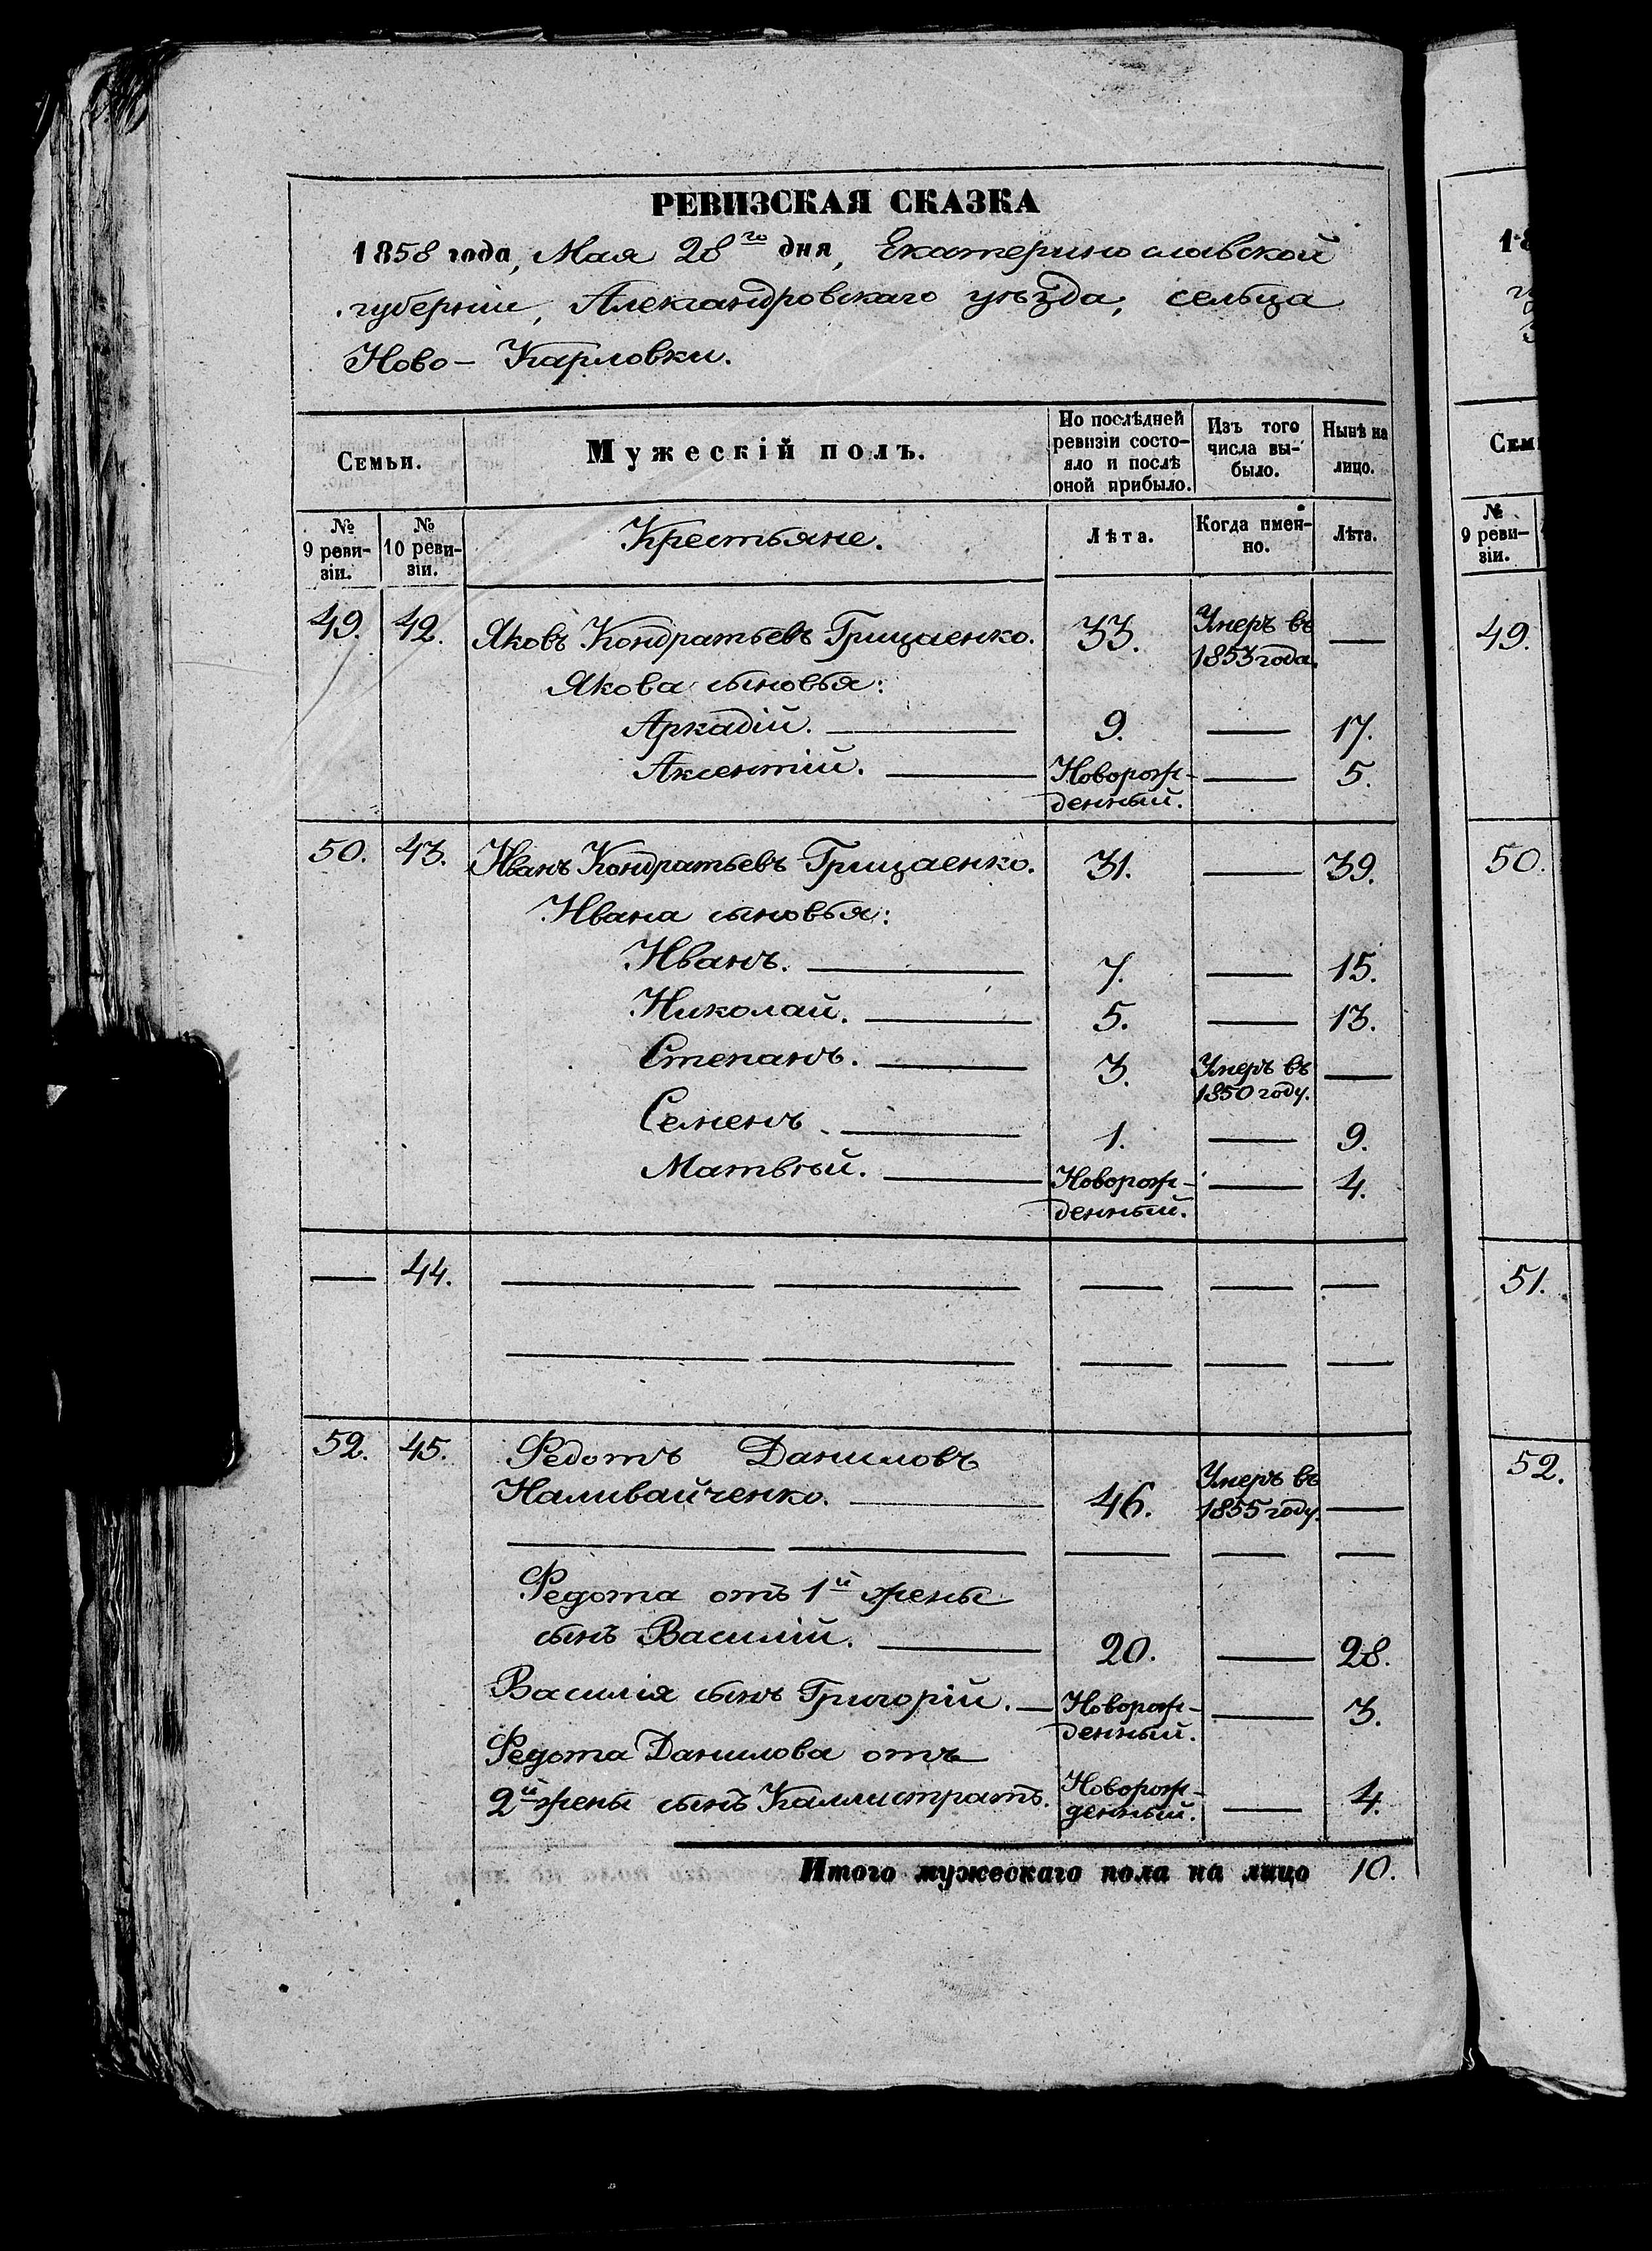 РЕВИЗСКАЯ СКАЗКА
1858 года, Мая 28го дня, Екатеринославской
губерніи, Александровскаго уѣзда, сельца
Ново- Карловки.
Семьи.
Мужескій полъ.
По послѣдней ревизіи состо-
яло и послѣ оной прибыло.
Изъ того числа вы-
было.
Нынѣ на лицо.
№ 9 реви-
зіи.
№ 10 реви-
зіи.
Крестьяне.
Лѣта.
Когда имен-
но.
Лѣта.
49. 42. Яковъ Кондратьевъ Грицаенко. 33. Умеръ въ 1853 года. —
Якова сыновья:
Аркадій. — 9. — 17.
Аксентій. — Новорож-
денный. — 5.
50. 43. Иванъ Кондратьевъ Грицаенко. 31. — 39.
Ивана сыновья:
Иванъ. — 7. — 15.
Николай. — 5. — 13.
Степанъ. — 3. Умеръ въ 1850 году. —
Семенъ. — 1. — 9.
Матвѣй. — Новорож-
денный. — 4.
— 44. — — — — —
— — — — —
52. 45. Федотъ Даниловъ
Наливайченко. — 46. Умеръ въ 1855 году. —
— — — — —
Федота отъ 1й жены
сынъ Василій. — 20. — 28.
Василія сынъ Григорій. — Новорож-
денный. — 3.
Федота Данилова отъ
2й жены сынъ Каллистратъ. Новорож-
денный. — 4.
Итого мужескаго пола на лицо 10.
№ 9 реви-
зіи.
49.
50.
51.
52.